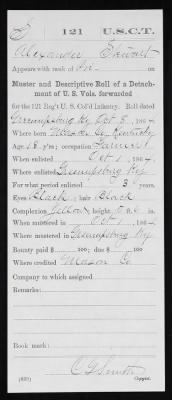 S | 121 | U.S.C.T.
Alexander Stewart
Appears with rank of Pvt. on
Muster and Descriptive Roll of a Detach-
ment of U. S. Vols. forwarded
for the 121 Reg't U. S. Col'd Infantry. Roll dated
Greenupsburg Ky Oct 5, 1864
Where born Mason Co, Kentucky
Age 18 y'rs; occupation Farmer
When enlisted Oct 1, 1864
Where enlisted Greenupsburg Ky
For what period enlisted 3 years.
Eyes Black; hair Black
Complexion Yellow; height 5 ft. in.
When mustered in Oct 1, 1864
Where mustered in Greenupsburg Ky
Bounty paid $ 100; due $ 100
Where credited Mason Co
Company to which assigned
Remarks:
Book mark:
Copyist.